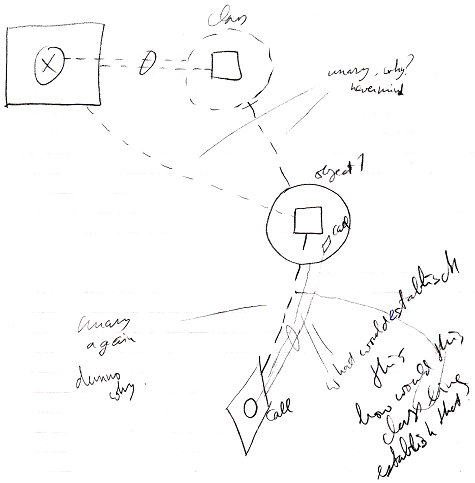 class
unary, why?
nevermind
object 1
call
unary
again
dunno
why.
call
what would establish
this
how would this
class thing
establish that?